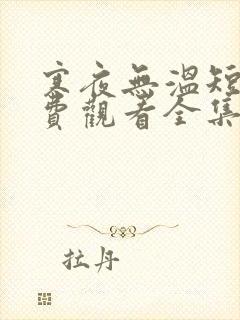 寒夜無溫短
費觀看全集
拉丹